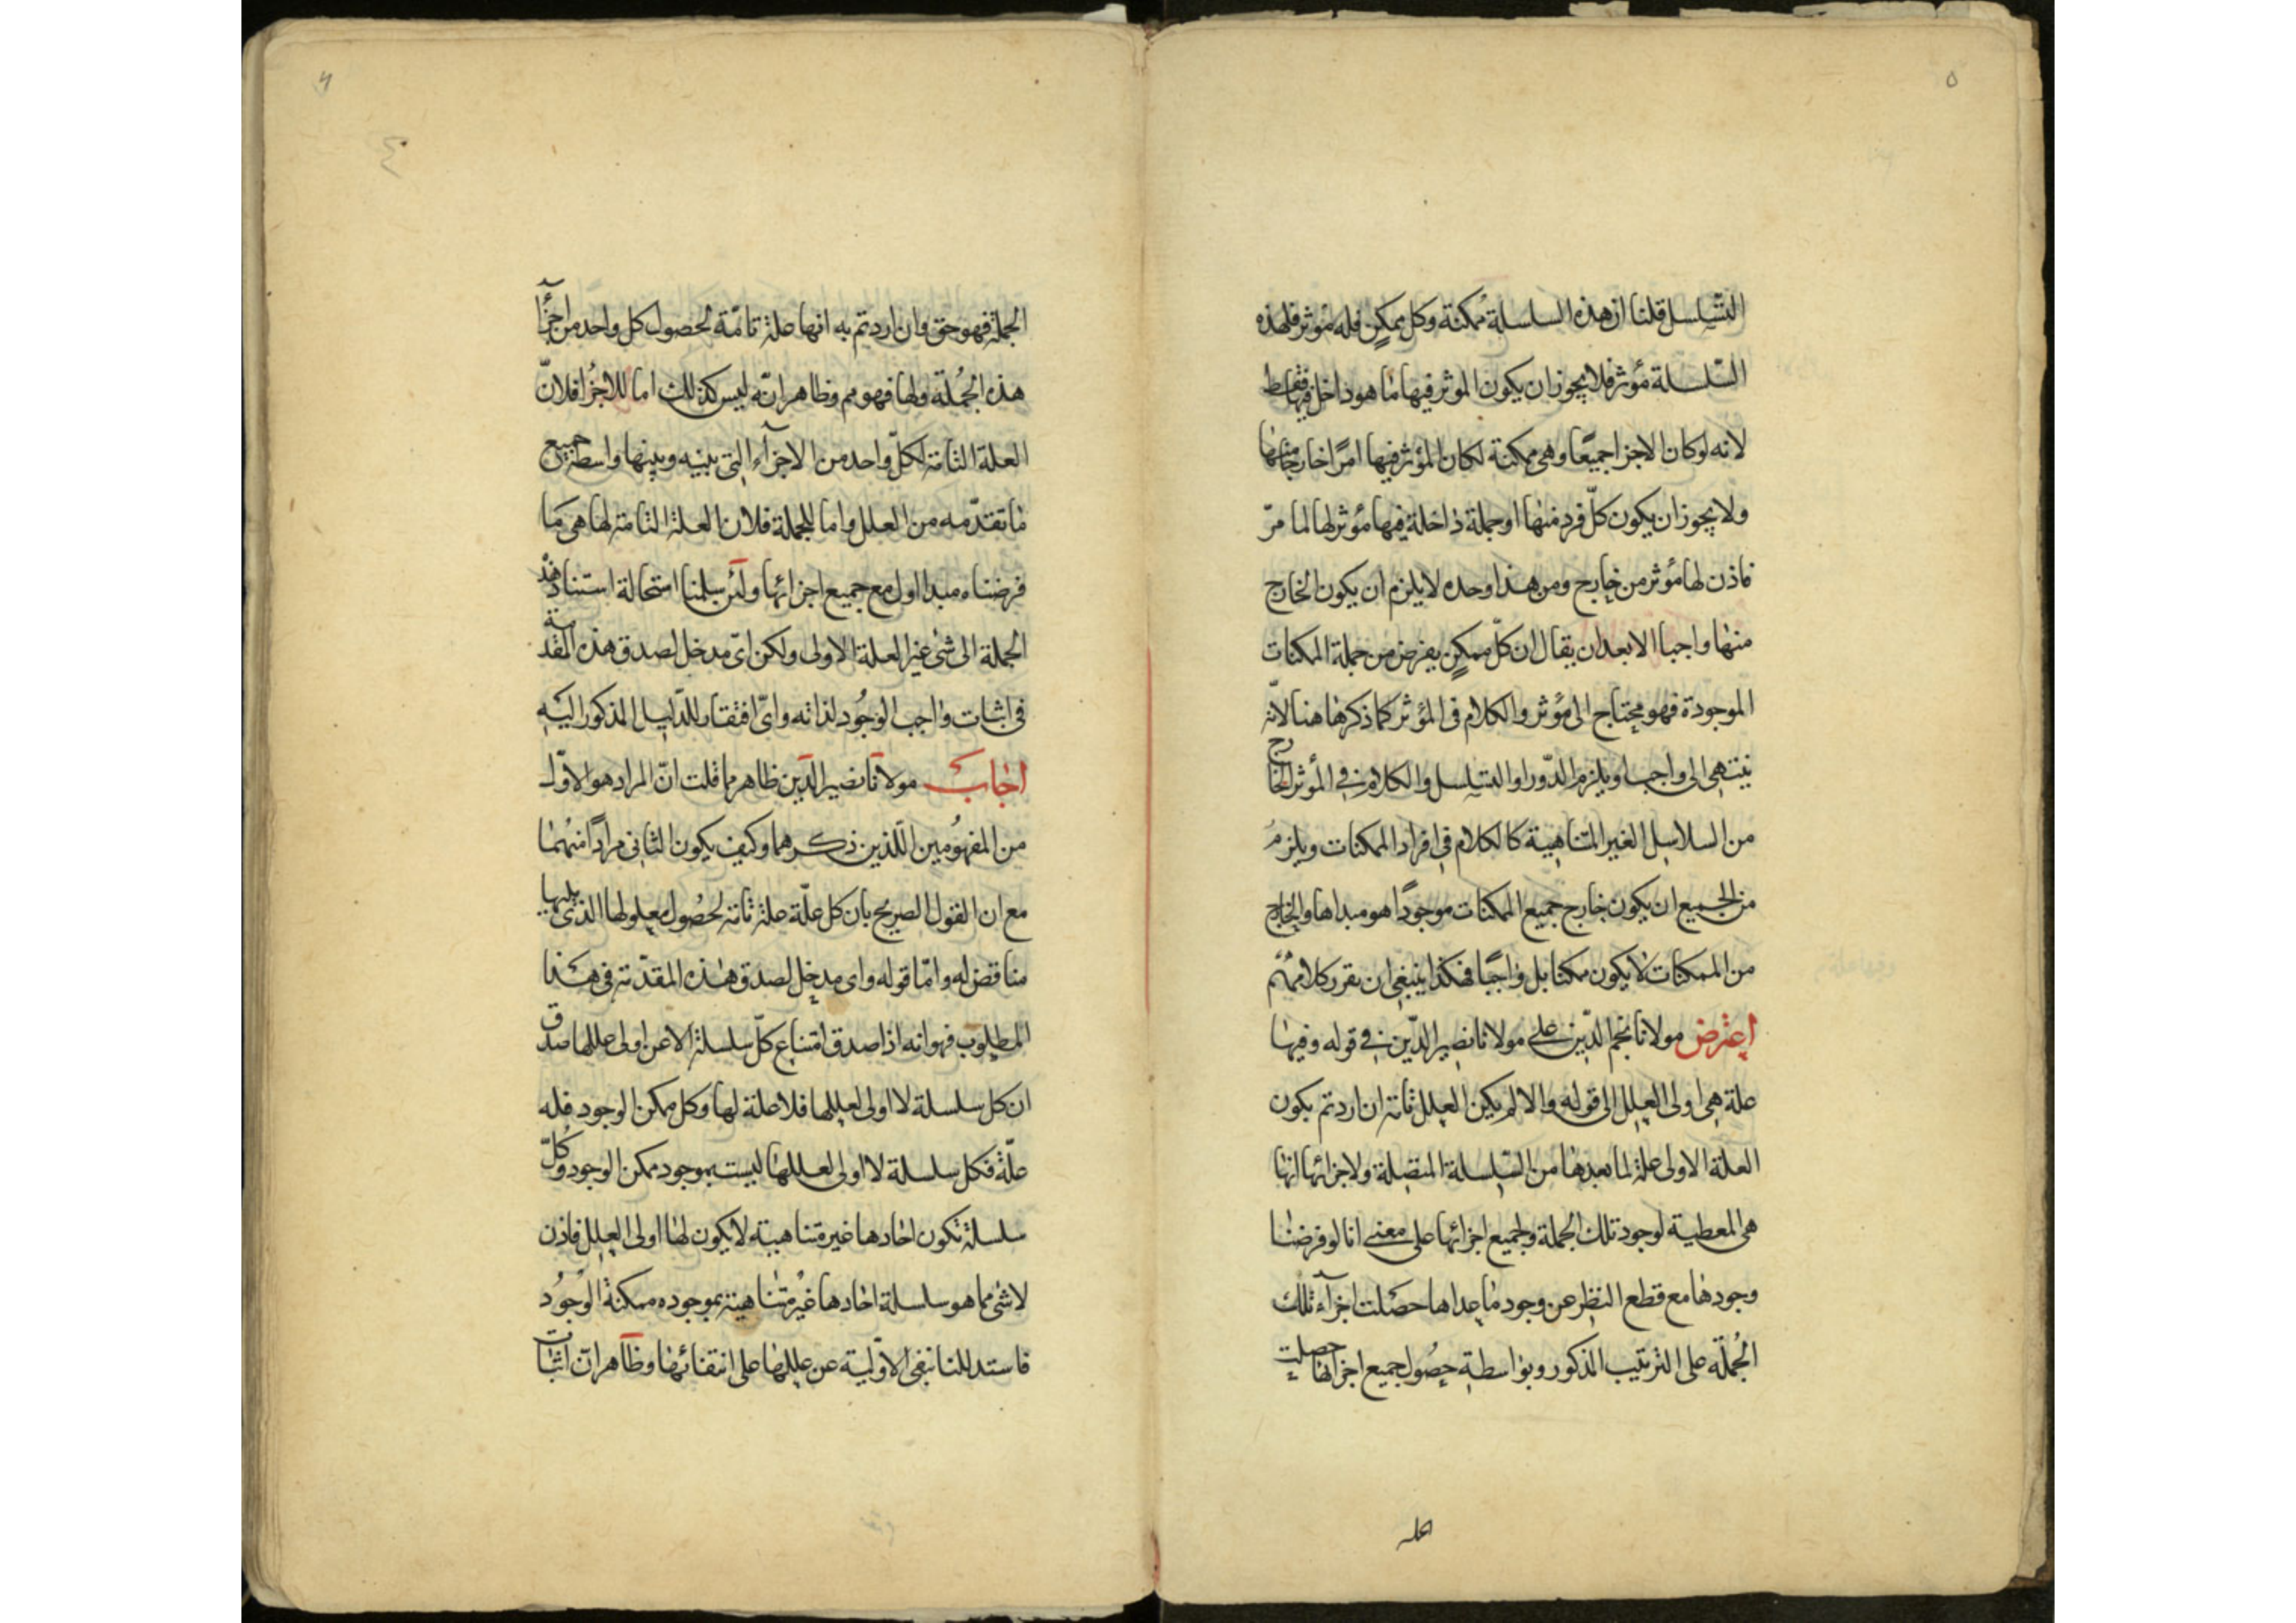 ٥
التسلسل قلنا ان هذه السلسلة ممكنة وكل ممكن فله مؤثر فلهذه
السّلسلة مؤثر فلا يجوز ان يكون المؤثر فيها ما هو داخل فيها فقط
لانه لو كان الاجزا جميعًا وهى ممكنة لكان المؤثر فيها امرًا خارجا منها
ولا يجوز ان يكون كلّ فرد منها او جملة داخلة فيها مؤثر لها لما مرّ
فاذن لها مؤثر من خارج ومن هذا وحده لا يلزم ان يكون الخارج
منها واجبا الا بعد ان يقال ان كلّ ممكنٍ يفرض من جملة الممكنات
الموجودة فهو محتاج الى مؤثر والكلام فى المؤثر كما ذكرها هنا لانّه
ينتهى الى واجب او يلزم الدّور او التسلسل والكلام فى المؤثر الخارج
من السلاسل الغير المتناهية كالكلام فى افراد الممكنات ويلزمُ
من الجميع ان يكون خارج جميع الممكنات موجودًا هو مبداها والخارج
من الممكنات لا يكون ممكنا بل واجبًا فهكذا ينبغى ان يقرر كلامهم
اعترض مولانا نجم الدّين على مولانا نصير الدّين فى قوله وفيها
علة هى اولى العلل الى قوله والا لم يكن العلل تامة ان اردتم بكون
العلة الاولى علة لما بعدها من السلسلة المتصلة ولاجزائها انها
هى المعطية لوجود تلك الجملة ولجميع اجزائها على معنى انا لو فرضنا
وجودها مع قطع النظر عن وجود ما عداها حصلت اجزآء تلك
الجُملة على الترتيب المذكور وبواسطة حصُول جميع اجزائها حصلت
٦
٤
الجملة فهو حق وان اردتم به انها علة تامّة لحصول كل واحد من اجزآ
هذه الجُملة ولها فهو مم وظاهر انّه ليس كذلك اما للاجزُا فلانّ
العلة التامة لكلّ واحد من الاجزآء التى بينه وبينها واسطة جميع
ما تقدّمه من العلل واما للجملة فلان العلة التامة لها هى ما
فرضناه مبدا اول مع جميع اجزائها ولئن سلمنا استحالة استناد هذه
الجملة الى شئ غير العلة الاولى ولكن اىّ مدخل لصدق هذه المقدمة
فى اثبات واجب الوجُود لذاته واىّ افتقار للدّليل المذكور اليه
اجاب مولانا نصير الدّين ظاهر مما قلت انّ المراد هو الاوّل
من المفهُومين اللّذين ذكرهما وكيف يكون الثانى مرادًا منهُما
مع ان القول الصريح بان كل علّة علة تامة لحصُول معلولها الذى يليها
مناقض له وامّا قوله واى مدخل لصدق هذه المقدّمة فى هذا
المطلوب فهو انه اذا صدق امتناع كلّ سلسلة الا عن اولى عللها صدق
ان كل سلسلة لا اولى لعللها فلا علة لها وكل ممكن الوجود فله
علّة فكل سلسلة لا اولى لعللها ليست بموجود ممكن الوجود وكلّ
سلسلة تكون احادها غير متناهية لا يكون لها اولى العلل فاذن
لا شئ مما هو سلسلة احادها غيُر متناهية بموجوده ممكنة الوجُود
فاستدللنا بنفى الاوّلية عن عللها على انتفائها وظاهر انّ اثبات